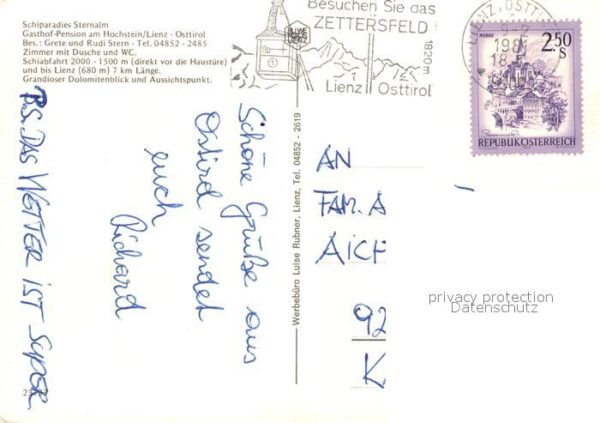 Schiparadies Sternalm
Gasthof-Pension am Hochstein/Lienz - Osttirol
Bes.: Grete und Rudi Stern - Tel. 04852 - 2485
Zimmer mit Dusche und WC.
Schiabfahrt 2000 - 1500 m (direkt vor die Haustüre)
und bis Lienz (680 m) 7 km Länge.
Grandioser Dolomitenblick und Aussichtspunkt.
Besuchen Sie das
ZETTERSFELD!
1820 m
Lienz Osttirol
LIENZ, OSTTIROL
1981
18
MURAU
2.50
S
REPUBLIK ÖSTERREICH
Schöne Grüße aus
Osttirol sendet
euch
Richard
P.S. DAS WETTER IST SUPER
Werbebüro Luise Rubner, Lienz, Tel. 04852 - 2619
AN
FAM. A
AICH
92
K
privacy protection
Datenschutz